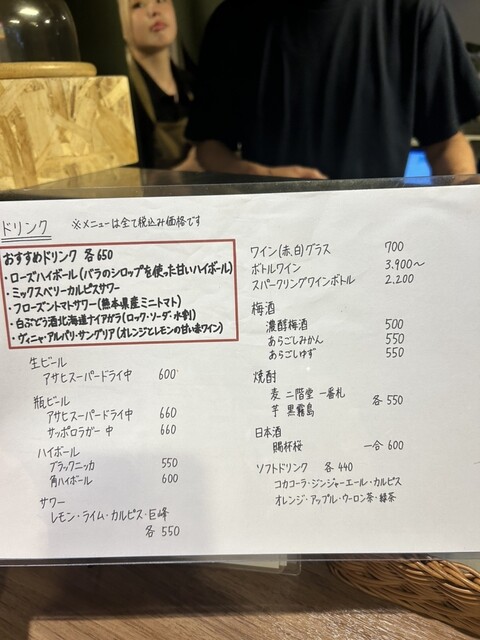 ドリンク ※メニューは全て税込み価格です
おすすめドリンク 各650
・ローズハイボール(バラのシロップを使った甘いハイボール)
・ミックスベリーカルピスサワー
・フローズントマトサワー(熊本県産ミニトマト)
・白ぶどう酒北海道ナイアガラ(ロック・ソーダ・水割)
・ヴィニャ・アルバリ・サングリア(オレンジとレモンの甘い赤ワイン)
生ビール
アサヒスーパードライ中 600
瓶ビール
アサヒスーパードライ中 660
サッポロラガー 中 660
ハイボール
ブラックニッカ 550
角ハイボール 600
サワー
レモン・ライム・カルピス・巨峰
各 550
ワイン(赤,白)グラス 700
ボトルワイン 3.900〜
スパークリングワインボトル 2.200
梅酒
濃醇梅酒 500
あらごしみかん 550
あらごしゆず 550
焼酎
麦 二階堂 一番札
芋 黒霧島
各 550
日本酒
賜杯桜 一合 600
ソフトドリンク 各 440
コカコーラ・ジンジャーエール・カルピス
オレンジ・アップル・ウーロン茶・緑茶